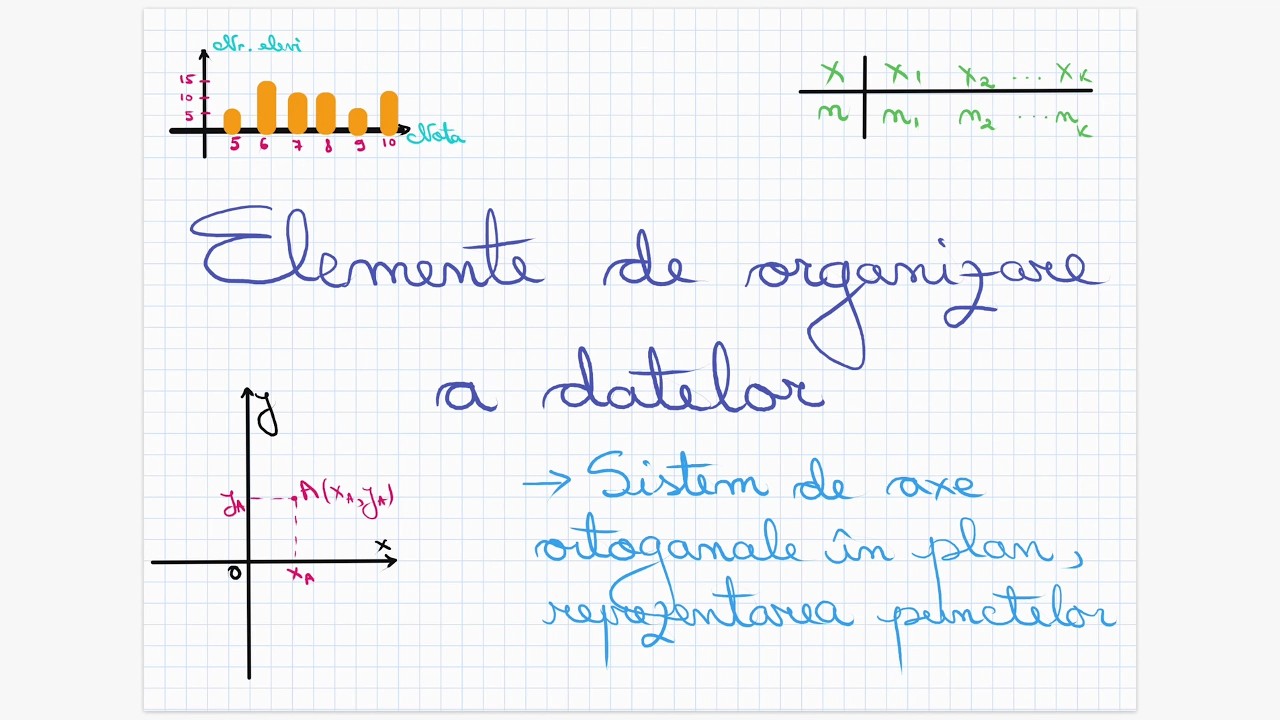 Nr. elevi
15
10
5
5 6 7 8 9 10
Nota
x x₁ x₂ ... xₖ
n n₁ n₂ ... nₖ
Elemente de organizare
a datelor
y
yA A(xA, yA)
x
O xA
→ Sistem de axe
ortoganale în plan,
reprezentarea punctelor